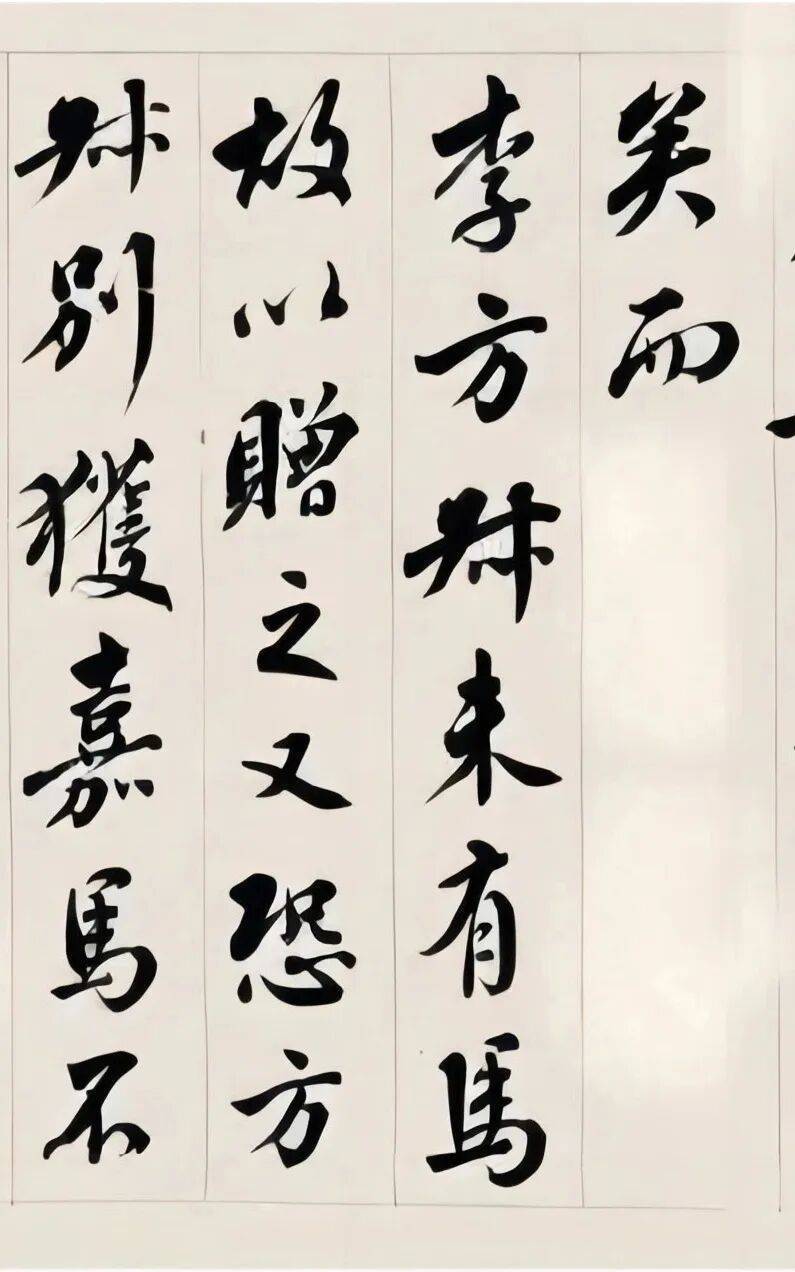 矣而
李方叔未有馬
故以贈之又恐方
叔別獲嘉馬不